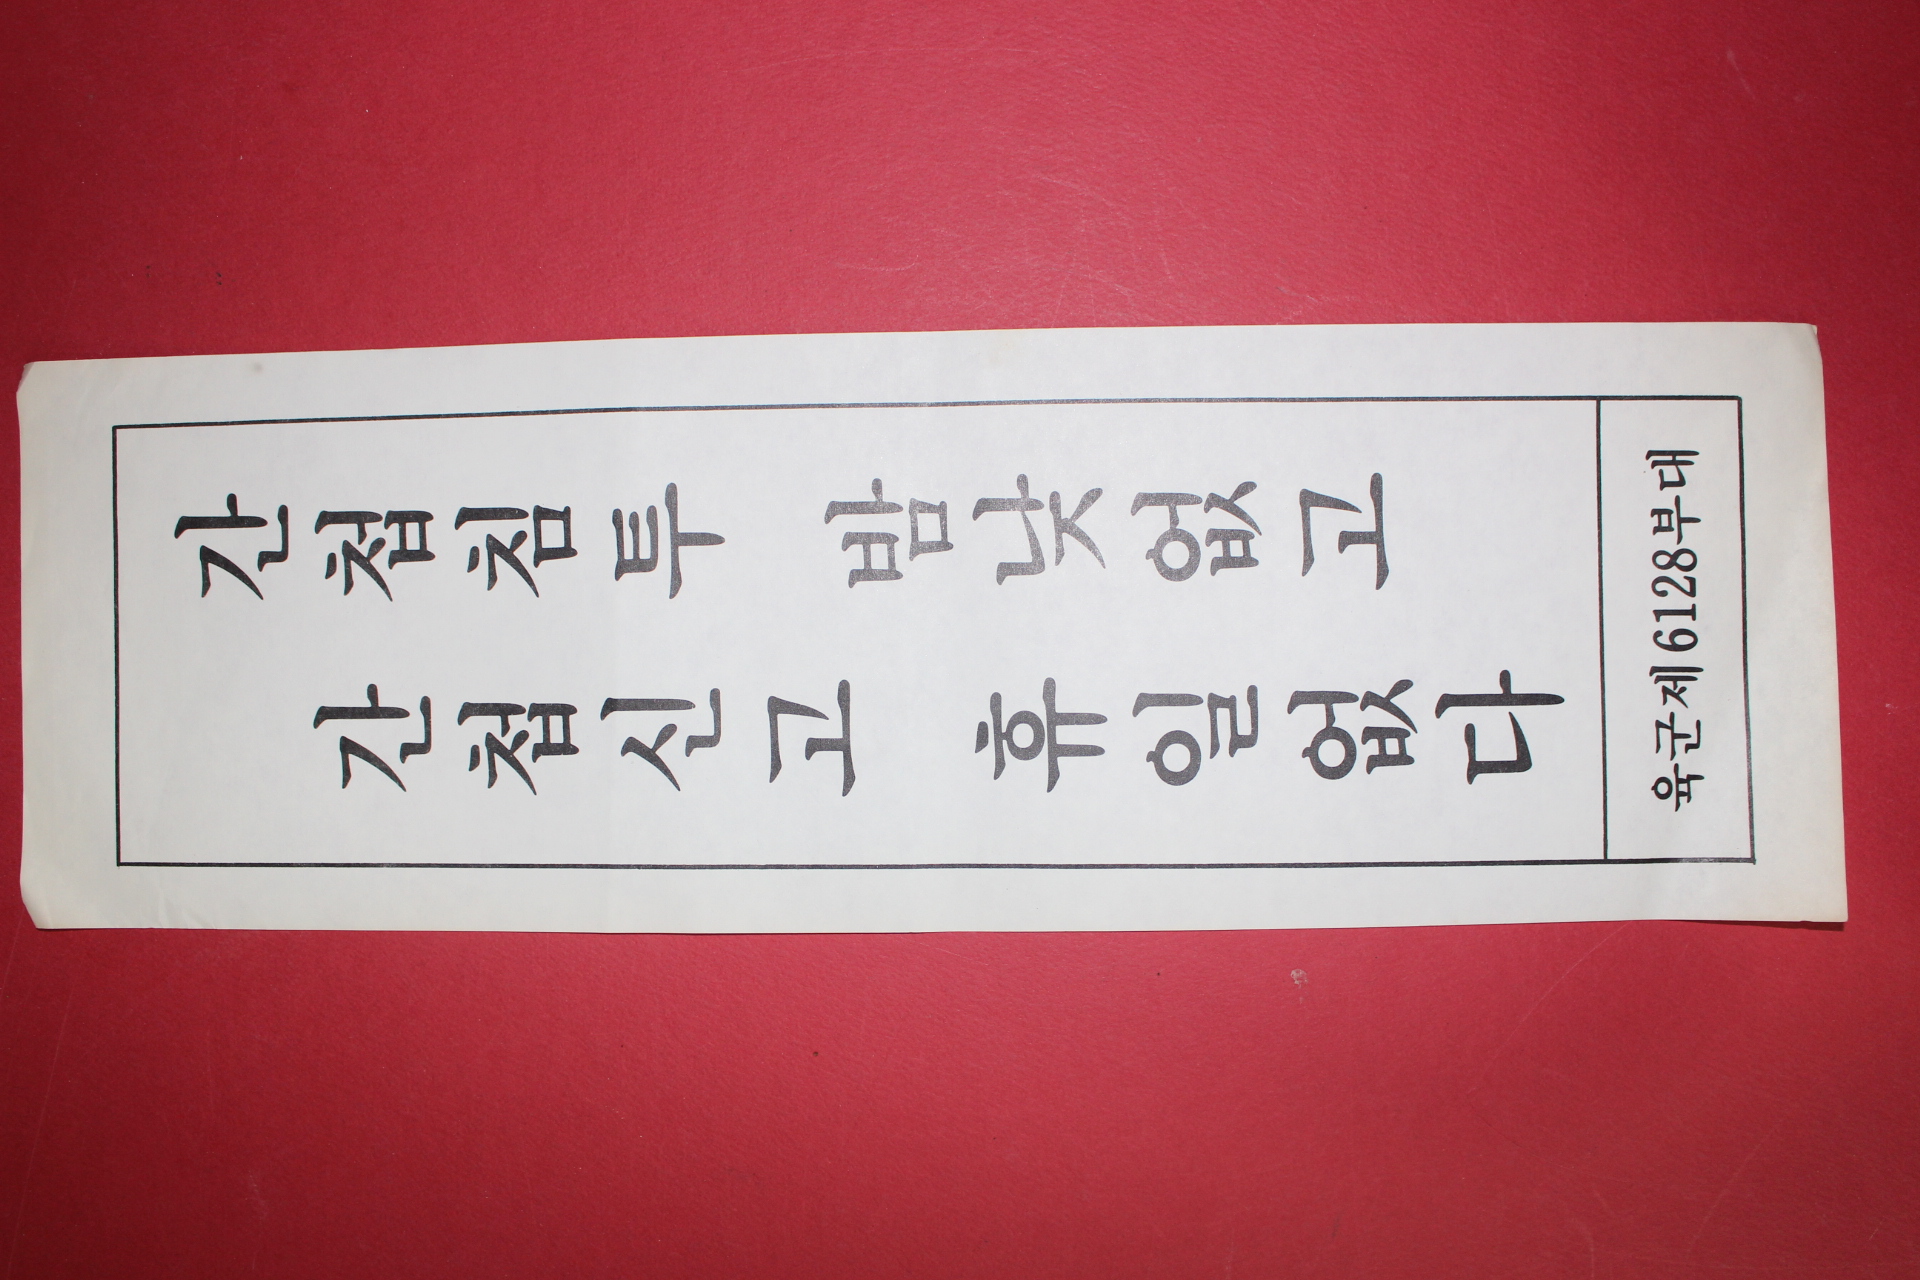 간첩침투 밤낮없고
간첩신고 휴일없다
육군제6128부대